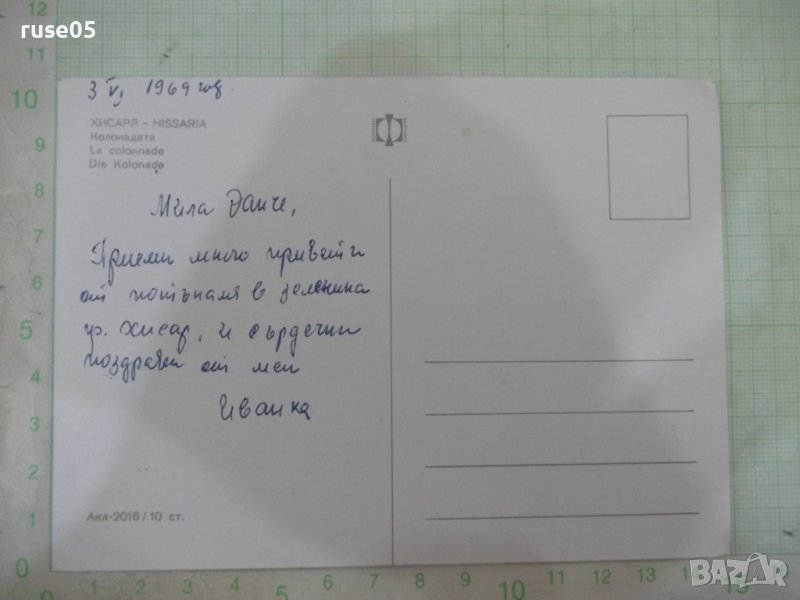 ruse05
3 VI, 1969 год
ХИСАРЯ - HISSARIA
Колонадата
La colonnade
Die Kolonade
Мила Данче,
Приеми много привети
от потъналия в зеленина
гр. Хисар, и сърдечни
поздрави от мен
Иванка
Акл-2016/10 ст.
BAZAR
12
11
10
9
8
7
6
5
4
3
2
1
0
1 2 3 4 5 6 7 8 9 10 11 12 13 14 15